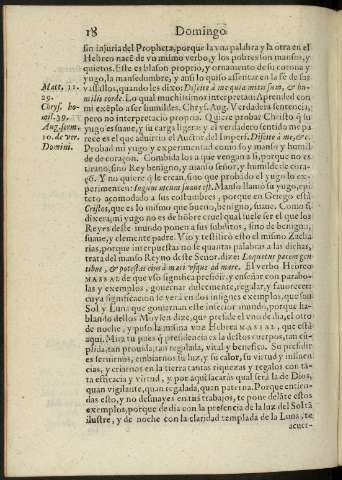 18 Domingo
sin injuria del Propheta, porque la vna palabra y la otra en el
Hebreo nacē de vn mismo verbo, y los pobres son mansos, y
quietos. Este es blason proprio, y ornamento de su corona y
yugo, la mansedumbre, y ansi lo quiso assentar en la fe de sus
vassallos, quando les dixo: Discite à me quia mitis sum, & hu-
milis corde. Lo qual muchissimos interpretan: Aprended con
mi exēplo a ser humildes. Chrys. Aug. Verdadera sentencia,
pero no interpretacio propria. Quiere probar Christo q̄ su
yugo es suaue, y su carga ligera: y el verdadero sentido me pa
rece es el de aduirtio el Auctor del Imperf. Discite à me, &c.
Probad mi yugo y experimentad como soy manso y humil-
de de coraçon. Combida los a que vengan a si, porque no es
tirano, sino Rey benigno, y manso señor, y humilde de cora-
çō. Y no quiere q̄ le crean, sino que probado el yugo lo ex-
perimenten: Iugum meum suaue est. Manso llamò su yugo, epi
teto acomodado a sus costumbres, porque en Griego està
Cristos, que es lo mismo que bueno, benigno, suaue. Como si
dixera; mi yugo no es de hōbre cruel qual suele ser el que los
Reyes deste mundo ponen a sus subditos, sino de benigno,
suaue, y clemente padre. Vio y testificò esto el mismo Zacha
rias, porque interpuestas no sè quantas palabras a las dichas,
trata del manso Reyno deste Señor, dize: Loquetur pacem gen
tibus, & potestas eius à mari vsque ad mare. El verbo Hebreo
MASSAL de que vsò significa presidir, y enseñar con parabo-
las y exemplos, gouernar dulcemente, regalar, y fauorecer:
cuya significacion se verà en dos insignes exemplos, que son
Sol y Luna que gouernan este inferior mundo, porque ha-
blando dellos Moysen dize, que preside el vno de dia, el otro
de noche, y puso la misma voz Hebrea MASSAL, que està
aqui. Mira tu pues q̄ presidencia es la destos cuerpos, tan cū-
plida, tan prouida, tan regalada, vtil y benefica. Su presidir
es seruirnos, embiarnos su luz, y su calor, su virtud y influen
cias, y criarnos en la tierra tantas riquezas y regalos con tā-
ta eficacia y virtud, y por aqui sacaràs qual serà la de Dios,
quan vigilante, quan regalada, quan paterna. Porque entien-
das esto, y no desmayes en tus trabajos, te pone delāte estos
exemplos, porque de dia con la presencia de la luz del Sol tā
ilustre, y de noche con la claridad templada de la Luna, te
acuer-
Matt. 11.
29.
Chrys. ho-
mil. 39.
Aug. serm.
10. de ver.
Domini.